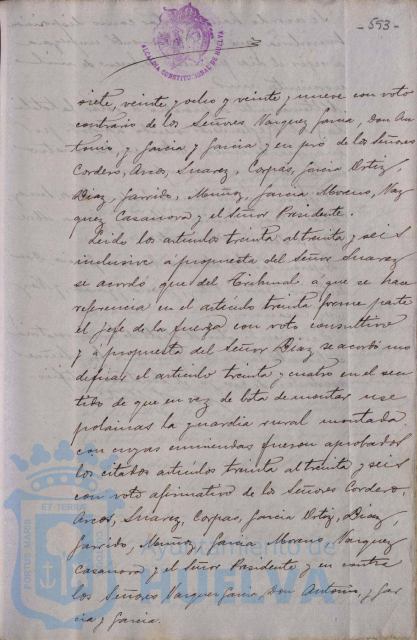 - 593 -
ALCALDIA CONSTITUCIONAL DE HUELVA
siete, veinte y ocho y veinte y nueve con voto
contrario de los Señores Vazquez Gama, Don An-
tonio, y Garcia y Garcia y en pró de los Señores
Cordero, Arcos, Suarez, Corpas, Garcia Ortiz,
Diaz, Garrido, Muñoz, Garcia Moreno, Vaz
quez Casanova y el Señor Presidente.
Leido los articulos treinta al treinta y seis
inclusive á propuesta del Señor Suarez
se acordó que del Tribunal á que se hace
referencia en el articulo treinta forme parte
el Jefe de la fuerza con voto consultivo
y á propuesta del Señor Diaz se acordó mo
dificar el articulo treinta y cuatro en el sen
tido de que en vez de bota de montar use
polainas la guardia rural montada
con cuyas enmiendas fueron aprobados
los citados articulos treinta al treinta y seis
con voto afirmativo de los Señores Cordero,
Arcos, Suarez, Corpas, Garcia Ortiz, Diaz,
Garrido, Muñoz, Garcia Moreno, Vazquez
Casanova y el Señor Presidente y en contra
los Señores Vazquez Gama, Don Antonio, y Gar
cia y Garcia.
PORTUS MARIS ET TERRAE
Ayuntamiento de
HUELVA